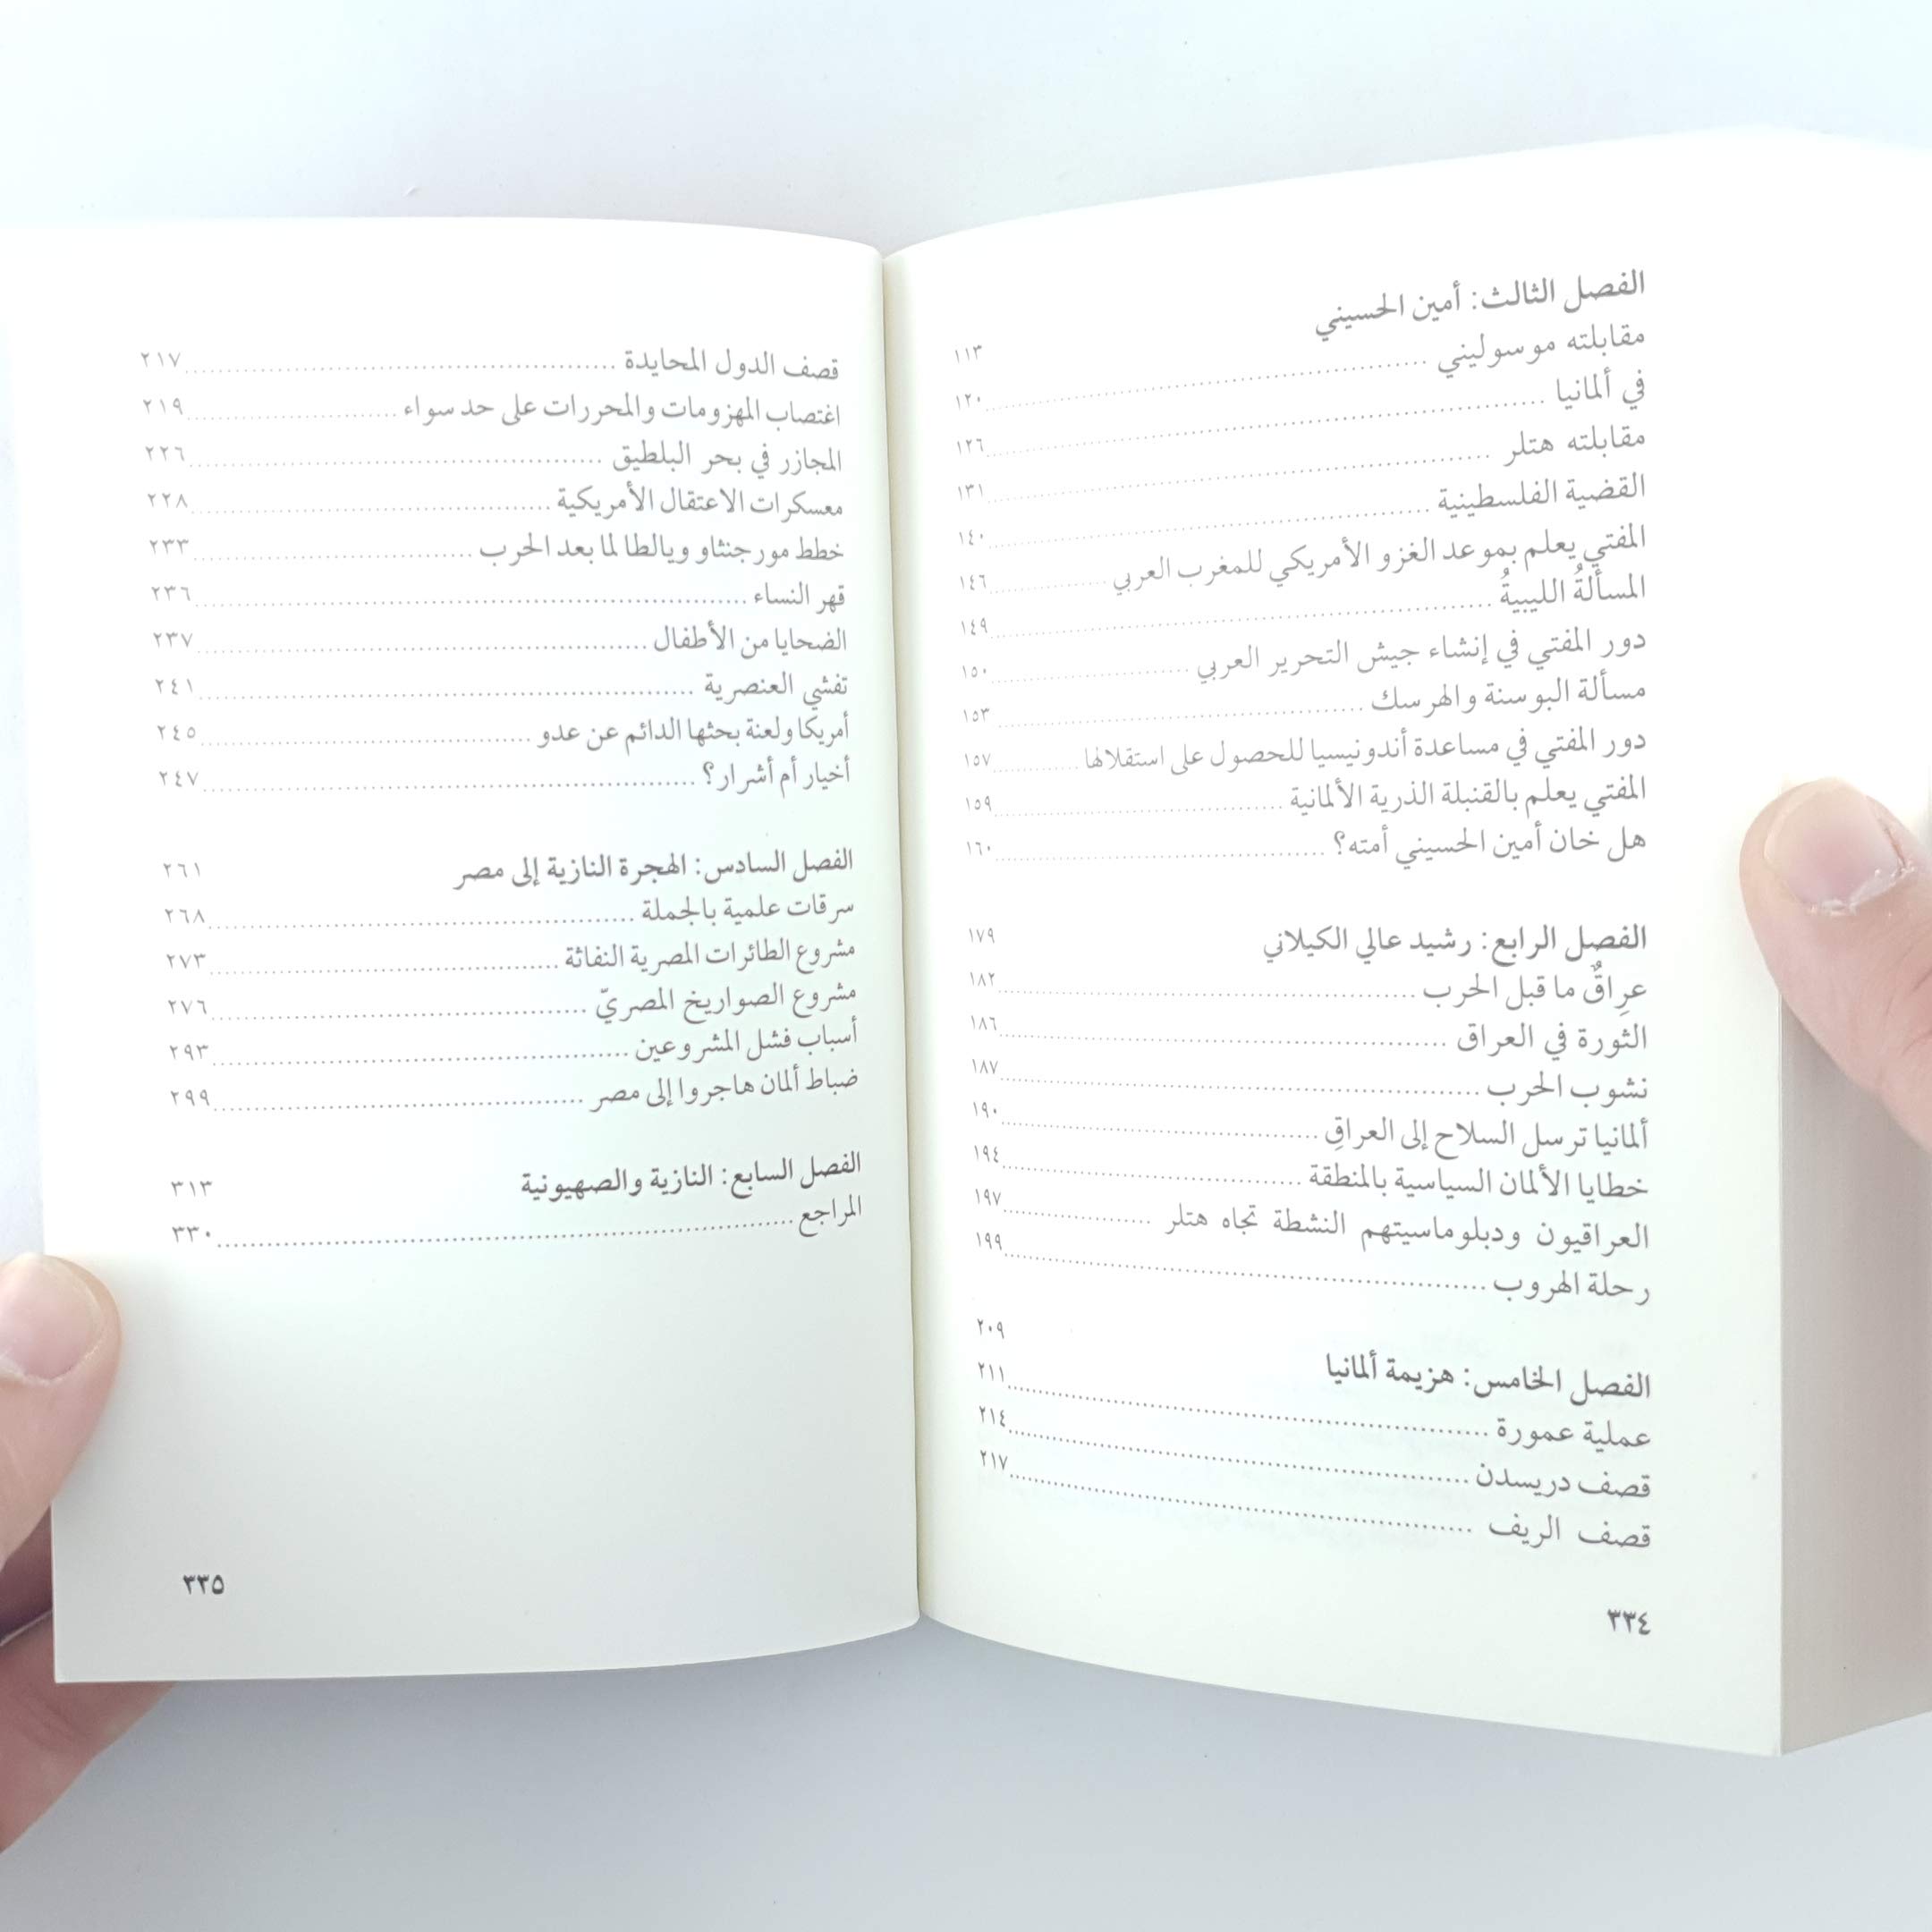 الفصل الثالث: أمين الحسيني ١١٣
مقابلته موسوليني ١٢٠
في ألمانيا ١٢٦
مقابلته هتلر ١٣١
القضية الفلسطينية ١٤٠
المفتي يعلم بموعد الغزو الأمريكي للمغرب العربي ١٤٦
المسألةُ الليبيةُ ١٤٩
دور المفتي في إنشاء جيش التحرير العربي ١٥٠
مسألة البوسنة والهرسك ١٥٣
دور المفتي في مساعدة أندونيسيا للحصول على استقلالها ١٥٧
المفتي يعلم بالقنبلة الذرية الألمانية ١٥٩
هل خان أمين الحسيني أمته؟ ١٦٠
الفصل الرابع: رشيد عالي الكيلاني ١٧٩
عِراقٌ ما قبل الحرب ١٨٢
الثورة في العراق ١٨٦
نشوب الحرب ١٨٧
ألمانيا ترسل السلاح إلى العراقِ ١٩٠
خطايا الألمان السياسية بالمنطقة ١٩٤
العراقيون ودبلوماسيتهم النشطة تجاه هتلر ١٩٧
رحلة الهروب ١٩٩
الفصل الخامس: هزيمة ألمانيا ٢٠٩
عملية عمورة ٢١١
قصف دريسدن ٢١٤
قصف الريف ٢١٧
٣٣٤
قصف الدول المحايدة ٢١٧
اغتصاب المهزومات والمحررات على حد سواء ٢١٩
المجازر في بحر البلطيق ٢٢٦
معسكرات الاعتقال الأمريكية ٢٢٨
خطط مورجنثاو ويالطا لما بعد الحرب ٢٣٣
قهر النساء ٢٣٦
الضحايا من الأطفال ٢٣٧
تفشي العنصرية ٢٤١
أمريكا ولعنة بحثها الدائم عن عدو ٢٤٥
أخيار أم أشرار؟ ٢٤٧
الفصل السادس: الهجرة النازية إلى مصر ٢٦١
سرقات علمية بالجملة ٢٦٨
مشروع الطائرات المصرية النفاثة ٢٧٣
مشروع الصواريخ المصريّ ٢٧٦
أسباب فشل المشروعين ٢٩٣
ضباط ألمان هاجروا إلى مصر ٢٩٩
الفصل السابع: النازية والصهيونية ٣١٣
المراجع ٣٣٠
٣٣٥